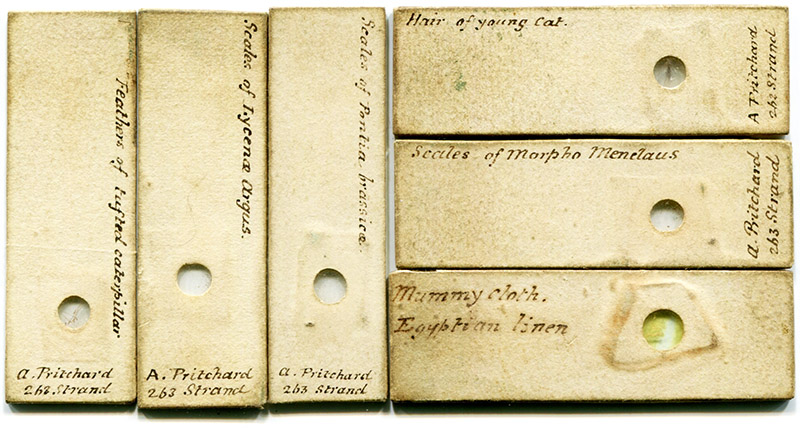 Feathers of tufted caterpillar
A. Pritchard
262 Strand
Scales of Lycenæ Argus.
A. Pritchard
263 Strand
Scales of Pontia brassicæ.
A. Pritchard
263 Strand
Hair of young Cat.
A Pritchard
262 Strand
Scales of Morpho Menelaus
A. Pritchard
263 Strand
Mummy Cloth.
Egyptian linen